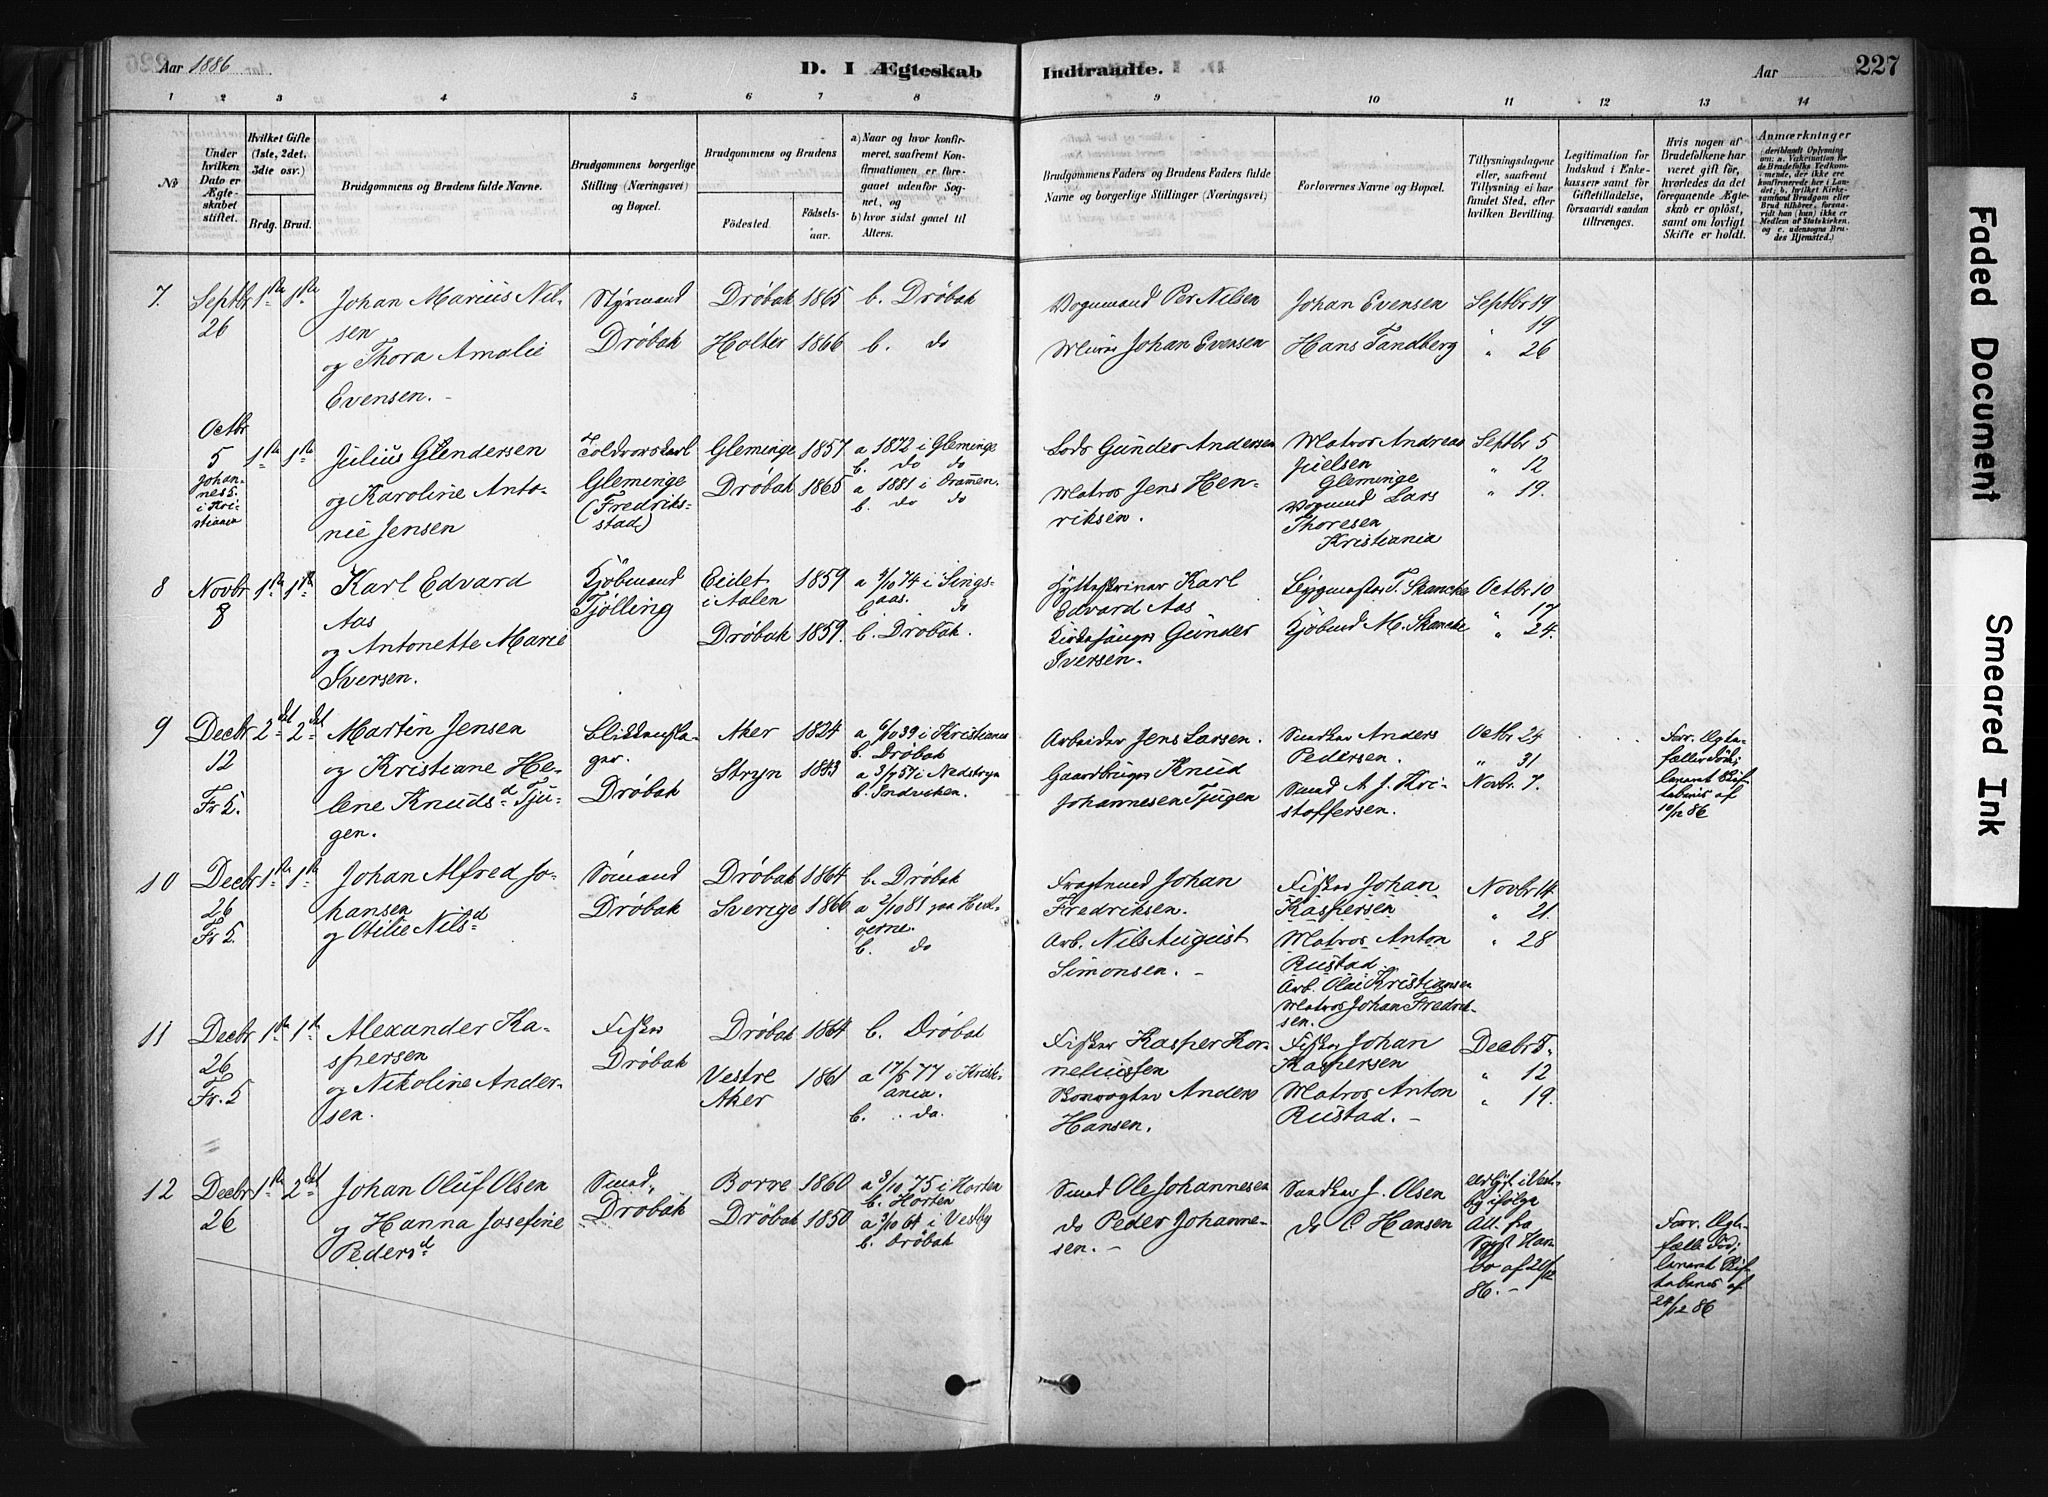 Aar 1886
D. I Ægteskab
Indtraadte.
Aar
227
1 2 3 4 5 6 7 8 9 10 11 12 13 14
№
Under hvilken Dato er Ægteskabet stiftet.
Hvilket Gifte (1ste, 2det, 3die osv.)
Brdg. Brud.
Brudgommens og Brudens fulde Navne.
Brudgommens borgerlige Stilling (Næringsvei) og Bopæl.
Brudgommens og Brudens
Födested. Födsels-aar.
a) Naar og hvor konfirmeret, saafremt Konfirmationen er foregaaet udenfor Sognet, og
b) hvor sidst gaaet til Alters.
Brudgommens Faders og Brudens Faders fulde Navne og borgerlige Stillinger (Næringsvei)
Forlovernes Navne og Bopæl.
Tillysningsdagene eller, saafremt Tillysning ei har fundet Sted, efter hvilken Bevilling.
Legitimation for Indskud i Enkekasser samt for Giftetilladelse, forsaavidt saadan tiltrænges.
Hvis nogen af Brudefolkene har været gift för, hvorledes da det foregaaende Ægteskab er oplöst, samt om lovligt Skifte er holdt.
Anmærkninger
7. Septbr 26 1ste 1ste Johan Marius Nilsen
og Thora Amalie Evensen.
Styrmand Drøbak
Drøbak 1865 b. Drøbak
Holter 1866 b. do
Vognmand Per Nilsen
Murer Johan Evensen
Johan Evensen
Hans Tandberg
Septbr 19
" 19
" 26
8 Octbr 5 Johannes K. i Kristiania 1ste 1ste
Julius Gundersen
og Karoline Antonie Jensen
Gleminge (Fredriksstad)
Gleminge 1857 a 1872 i Gleminge
b. do do
Drøbak 1865 a 1881 i Drammen.
b. do do
Lods Gunder Andersen
Matros Jens Henriksen.
Matros Andreas Juelsen
Gleminge
Vognmd Lars Thoresen
Kristiania
Septbr 5
" 12
" 19.
8 Novbr 8 1ste 1ste Karl Edvard Aas
og Antonette Marie Iversen.
Kjøbmand Tjølling
Eidet i Aalen 1859 a 4/10 74 i Singsaas.
b. do
Drøbak 1859. b. Drøbak.
Hytteskriver Karl Edvard Aas
Kirkesanger Gunder Iversen.
T. Skancke
Kjøbmd M. Skancke
Octbr 10
" 17
" 24.
9 Decbr 12 Fr 5. 2det 2det Martin Jensen
og Kristiane Helene Knudsd Tjugen.
Blikkenslager. Drøbak
Aker 1824 a 6/10 39 i Kristiania
b. Drøbak
Stryn 1843 a 3/7 57 i Nedstryn
b. Indviken.
Arbeider Jens Larsen.
Gaardbruger Knud Johannesen Tjugen
Snedker Anders Pedersen.
Smed A. J. Kristoffersen.
Octbr 24
" 31
Novbr. 7.
10/12 86
10 Decbr 26 Fr 5. 1ste 1ste Johan Alfred Johansen
og Otilie Nilsd
Sømand Drøbak
Drøbak 1864 b. Drøbak
Sverige 1866
b. do
Fragtmand Johan Fredriksen.
Arb. Nils August Simonsen. -
Fisker Johan Kaspersen
Matros Anton Rustad.
Arb. Olai Kristiansen
Matros Johan Fredriksen.
Novbr 14.
" 21.
" 28
11 Decbr 26 Fr. 5 1ste 1ste Alexander Kaspersen
og Nikoline Andersen.
Fisker Drøbak
Drøbak 1864 b. Drøbak
Vestre Aker 1861 i Kristiania.
b. do.
Fisker Kasper Korneliussen
Anders Hansen.
Fisker Johan Kaspersen
Matros Anton Rustad. -
Decbr 5.
" 12
" 19.
12 Decbr 26 1ste 2det Johan Oluf Olsen
og Hanna Josefine Pedersd
Smed, Drøbak
Borre 1860 a 3/10 75 i Horten
b. Horten
Drøbak 1850 a 2/10 64 i Vestby
b. Drøbak
Smed Ole Johannesen
do Peder Johannesen. -
Snedker J. Olsen
do C Hansen
24/12 86
Faded Document
Smeared Ink